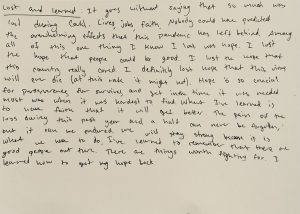 Lost and learned: It goes without saying that so much was
lost during Covid. Lives, jobs, faith. Nobody could have predicted
the overwhelming effects that this pandemic has left behind. Among
all of this one thing I know I lost was hope. I lost
the hope that people could be good. I lost the hope that
this country really cared. I definitely lost hope that this virus
will ever die (at this rate it might not). Hope is so crucial
for perseverance, for survival, and yet when time it was needed
most was when it was hardest to find where. I've learned is
to have faith that it will get better. The pain of the
loss during this past year and a half can never be forgotten,
but it can be endured. We will stay strong because it is
what we have to do. I've learned to remember that there are
good people out there. There are things worth fighting for. I
learned how to get my hope back.